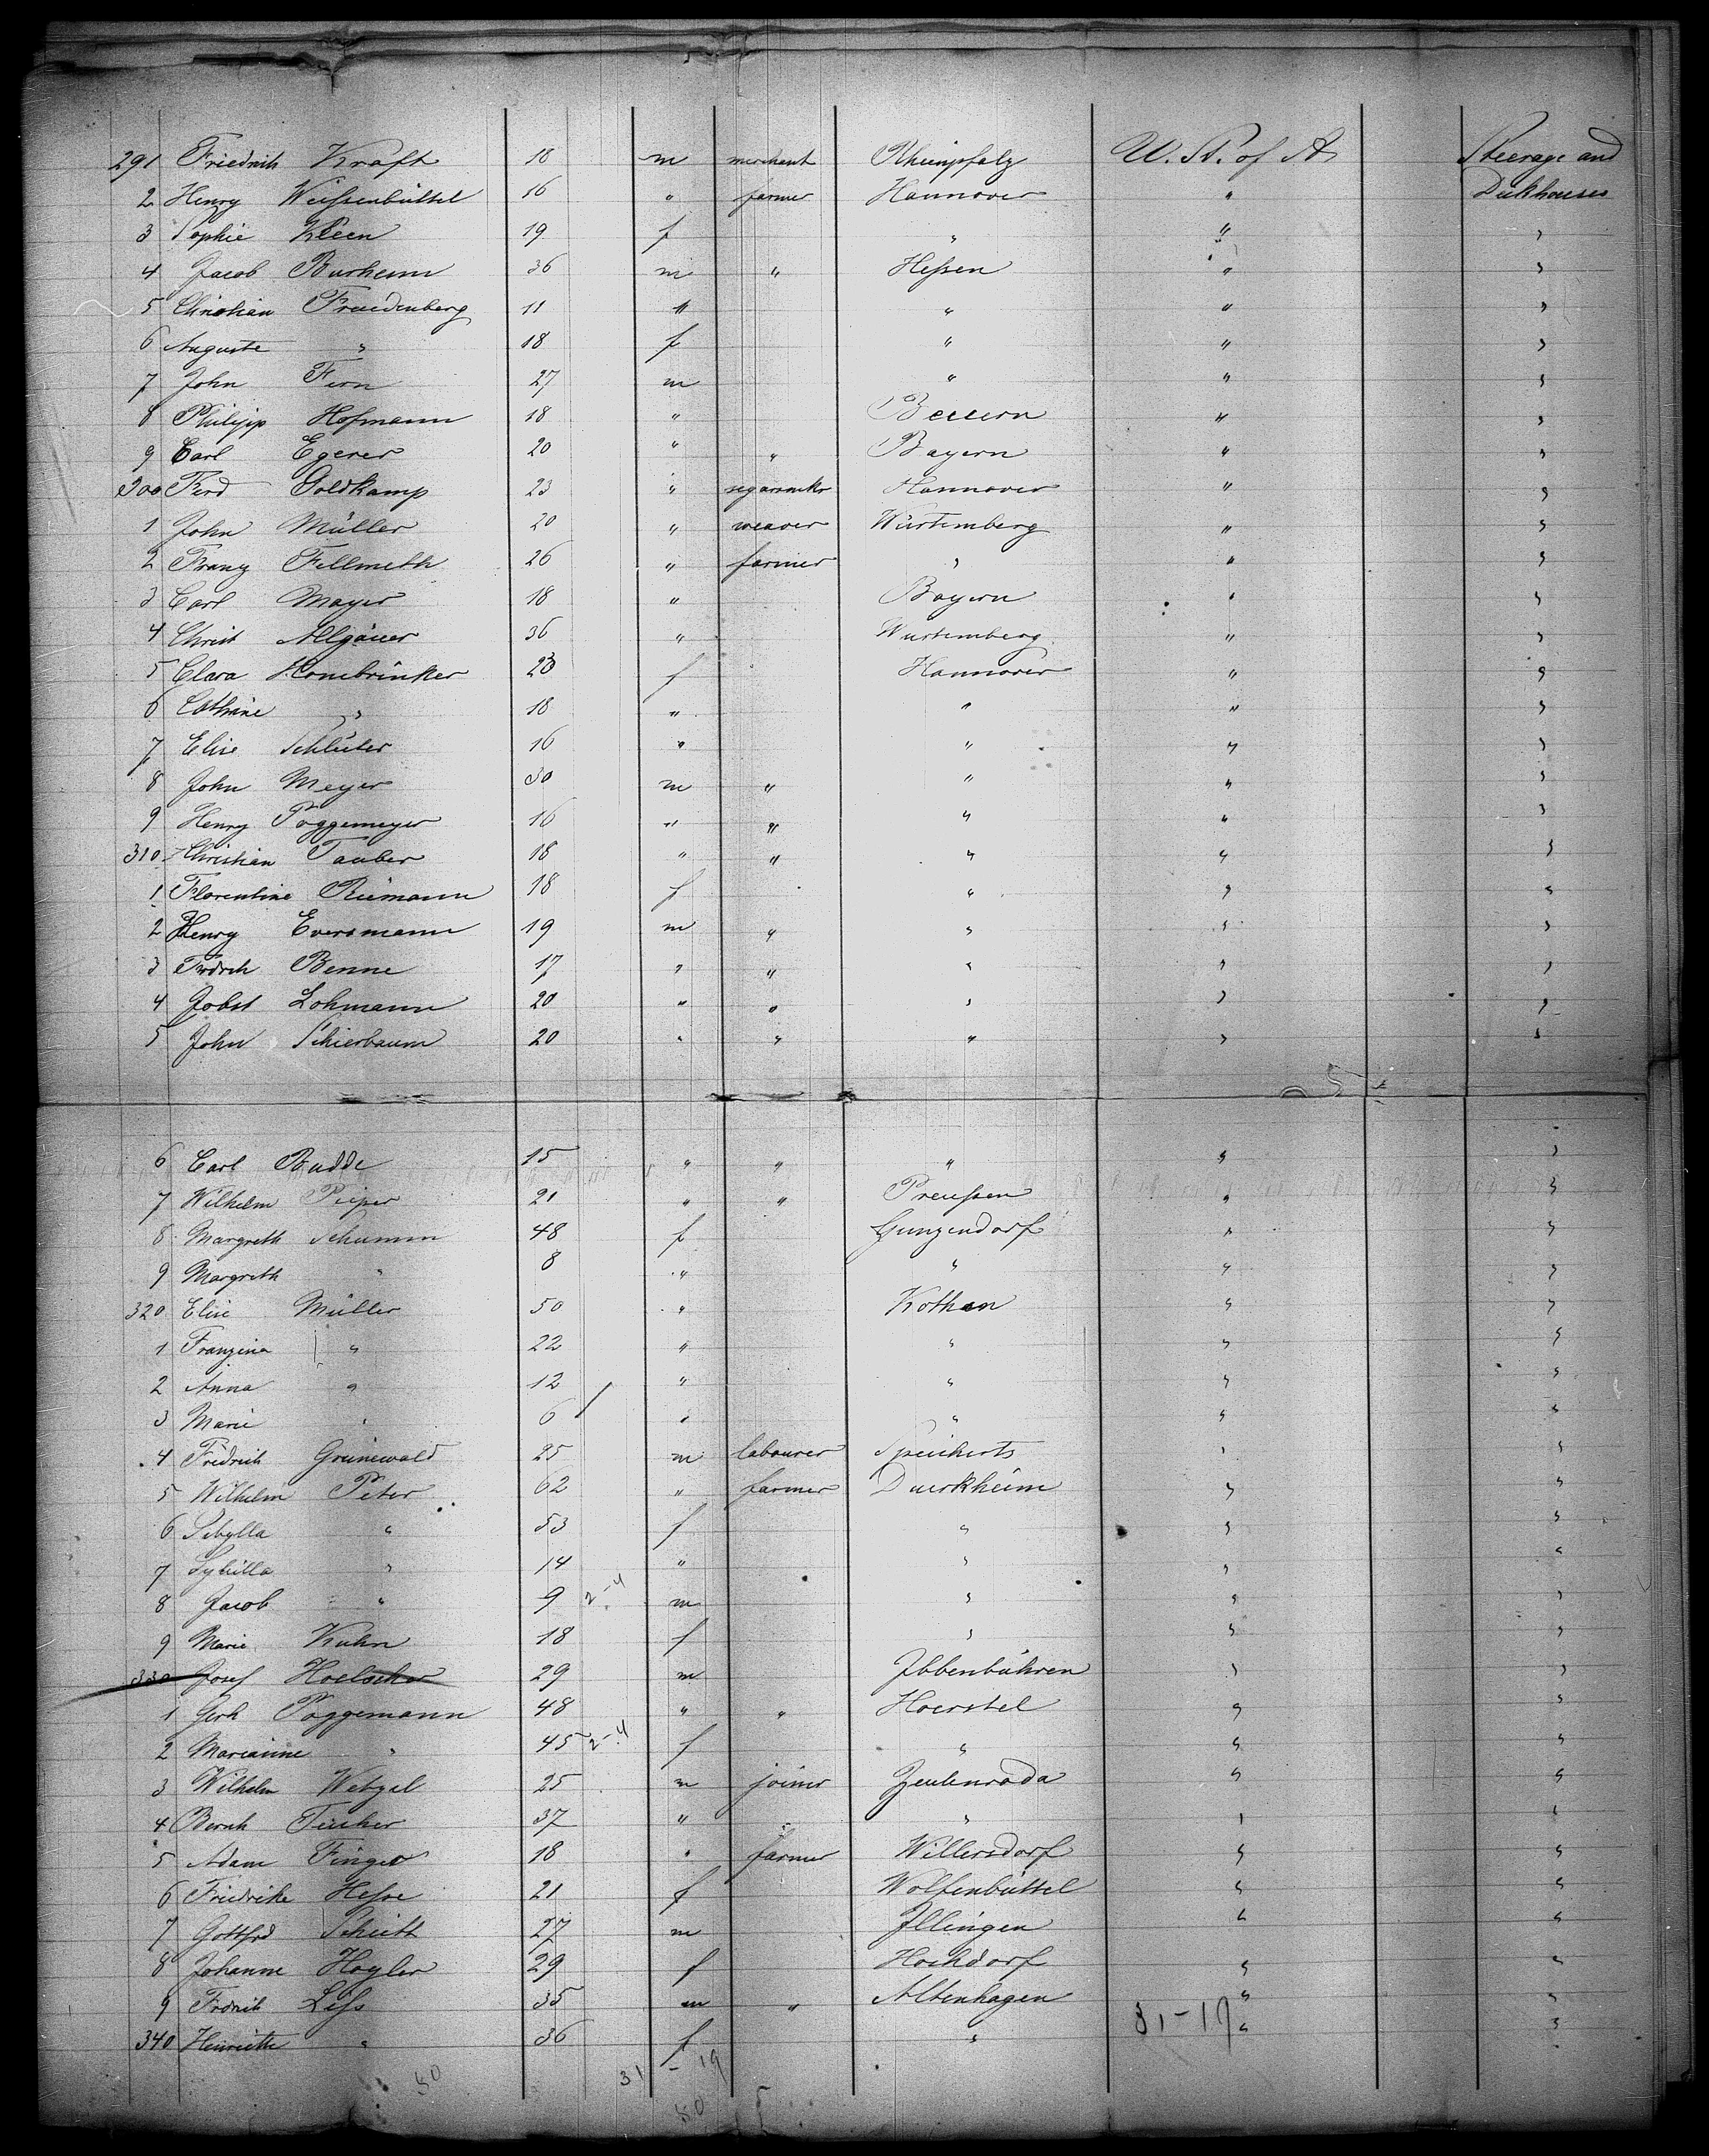 291 Friedrich Kraft 18 m merchant Rheinpfalz U. St. of A. Steerage and
2 Henry Weissenbüttel 16 " farmer Hannover " Deckhouses
3 Sophie Kleen 19 f " " "
4 Jacob Burhenn 36 m " Hessen " "
5 Christian Freudenberg 11 " " " "
6 Auguste " 18 f " " "
7 John Fern 27 m " " "
8 Philipp Hofmann 18 " " "
9 Carl Egerer 20 " " Bayern " "
300 Ferd Goldkamp 23 " segarmkr Hannover " "
1 John Müller 20 " weaver Würtemberg " "
2 Franz Fellmeth 26 " farmer " " "
3 Carl Mayer 18 " Bayern " "
4 Christ Allgäuer 36 " Wurtemberg " "
5 Clara Honebrinker 23 f Hannover " "
6 Cathrine " 18 " " " "
7 Elise Schlüter 16 " " " "
8 John Meyer 30 m " " " "
9 Henry Poggemeyer 16 " " " " "
310 Christian Tauber 18 " " " " "
1 Florentine Riemann 18 f " " "
2 Henry Eversmann 19 m " " " "
3 Frdrch Benne 17 " " " " "
4 Jobst Lohmann 20 " " " " "
5 John Schierbaum 20 " " " " "
6 Carl Budde 15 " " " " "
7 Wilhelm Pieper 21 " " Preussen " "
8 Margreth Schumm 48 f Gunzendorf " "
9 Margreth " 8 " " " "
320 Elise Müller 50 " Kothen " "
1 Franzina " 22 " " " "
2 Anna " 12 " " " "
3 Marie " 6 " " " "
4 Fridrich Grünewald 25 m labourer Speicherts " "
5 Wilhelm Peter 62 " farmer Duerkheim " "
6 Sibylla " 53 f " " "
7 Sybilla " 14 " " " "
8 Jacob " 9 2-4 m " " "
9 Marie Kuhn 18 f " " "
330 Josef Hoelscher 29 m Ibbenbühren " "
1 Gerh Poggemann 48 " " Hoerstel " "
2 Marianne " 45 2-4 f " " "
3 Wilhelm Wetzel 25 m joiner Zeulenroda " "
4 Bernh Tischer 37 " " " " "
5 Adam Finger 18 " farmer Willersdorf " "
6 Friedrike Hesse 21 f Wolfenbüttel " "
7 Gottfrd Scheitt 27 m Illingen " "
8 Johanne Hagler 29 f Hochdorf " "
9 Frdrich Less 35 m " Altenhagen " "
340 Henriette " 36 f " 31-19 " "
50 31 - 19
50